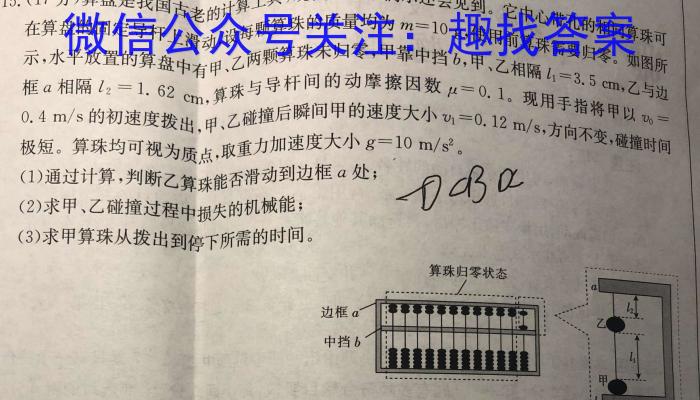 15.(17分)算盘是我国古老的计算工具
微信公众号关注：趣找答案
示,水平放置的算盘中有甲、乙两颗算珠未归零,甲靠中挡b,甲、乙相隔l₁=3.5 cm,乙与边
框a相隔l₂=1.62 cm,算珠与导杆间的动摩擦因数μ=0.1。现用手指将甲以v₀=
0.4 m/s的初速度拨出,甲、乙碰撞后瞬间甲的速度大小v₁=0.12 m/s,方向不变,碰撞时间
极短。算珠均可视为质点,取重力加速度大小g=10 m/s²。
(1)通过计算,判断乙算珠能否滑动到边框a处;
(2)求甲、乙碰撞过程中损失的机械能;
(3)求甲算珠从拨出到停下所需的时间。
算珠归零状态
边框a
中挡b
a
l₂
乙
l₁
甲
b